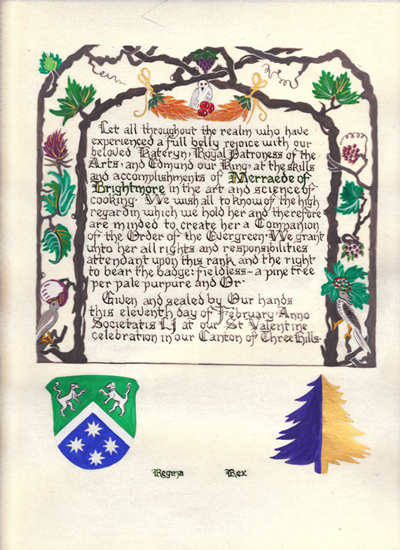 Let all throughout the realm who have
experienced a full belly rejoice with our
beloved Kateryn, Royal Patroness of the
Arts, and Edmund our King, at the skills
and accomplishments of Merraede of
Brightmore in the art and science of
cooking. We wish all to know of the high
regard in which we hold her and therefore
are minded to create her a Companion
of the Order of the Evergreen. We grant
unto her all rights and responsibilities
attendant upon this rank and the right
to bear the badge: fieldless - a pine tree
per pale purpure and Or.
Given and sealed by Our hands
this eleventh day of February Anno
Societatis LJ at our St Valentine
celebration in our Canton of Three Hills.
Regina Rex